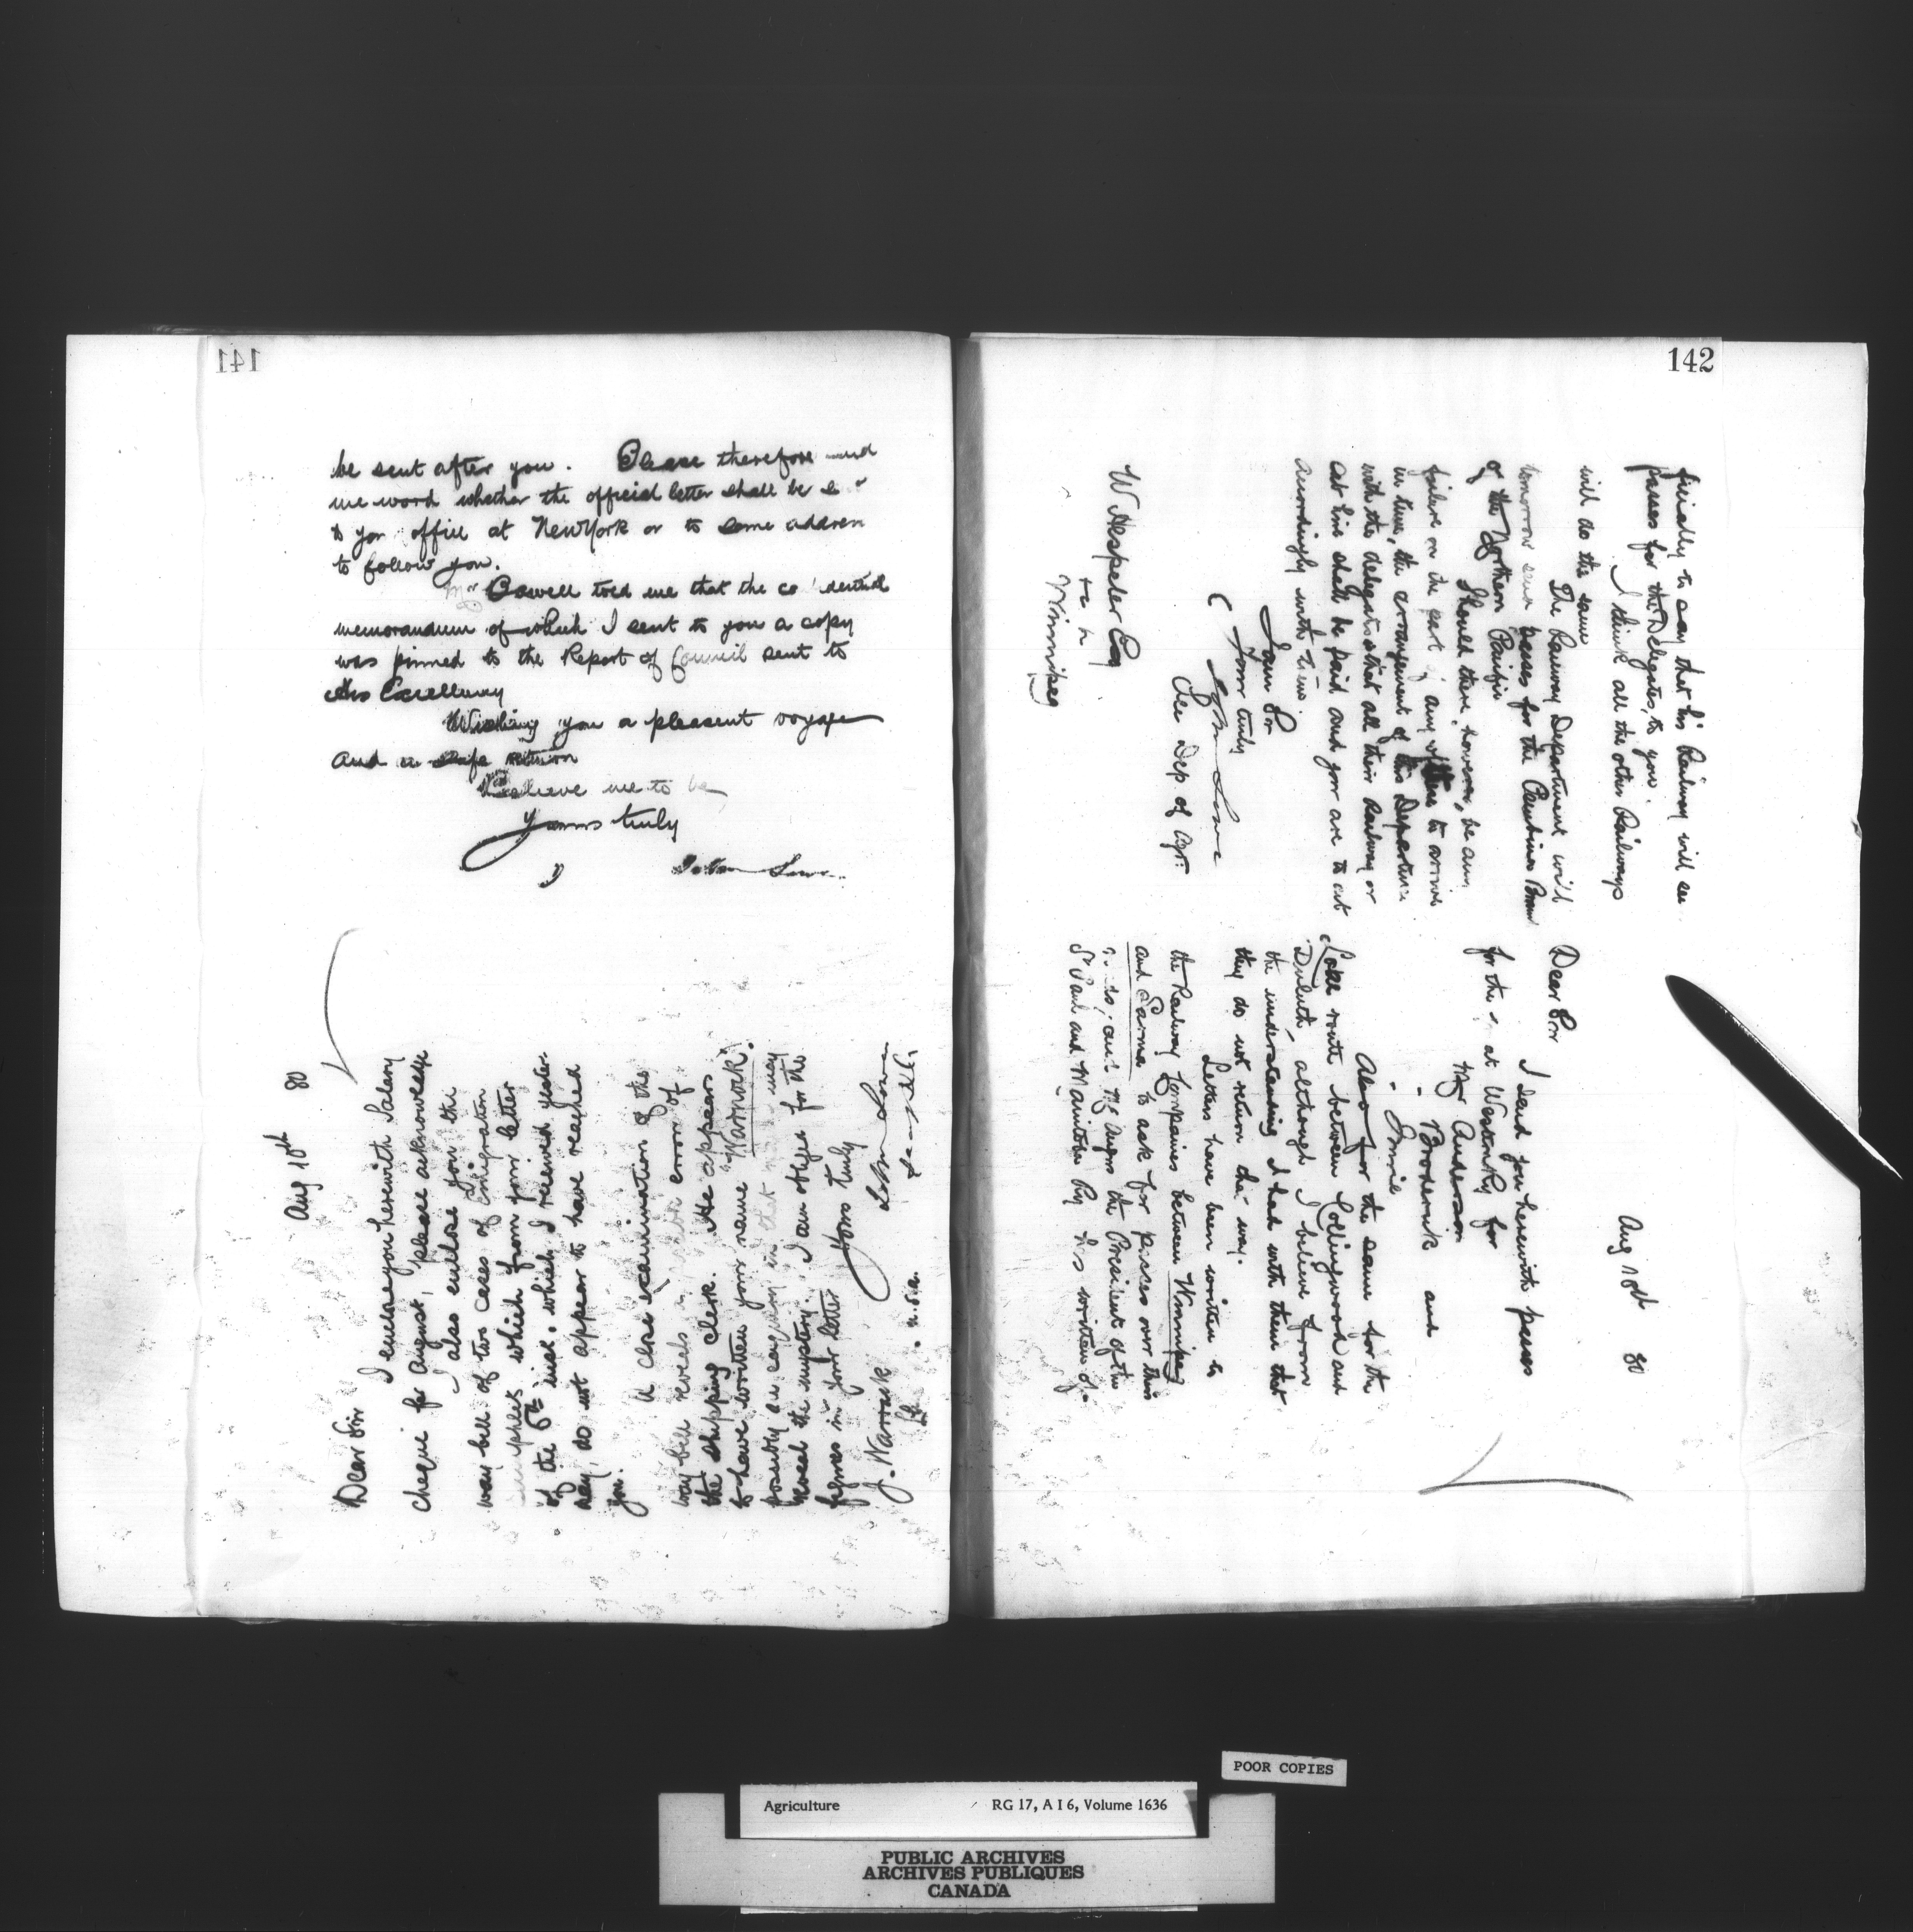 141
be sent after you. Please therefore send
me word whether the official letter shall be
to your office at New York or to some address
to follow you.
Mr Powell told me that the co dential
memorandum of which I sent to you a copy
was pinned to the Report of Council sent to
His Excellency
Wishing you a pleasant voyage
and a safe return
Believe me to be
Yours truly
John Lowe
Aug 10th 80
Dear Sir
I enclose you herewith Salary
cheque for August, please acknowledge
I also enclose you the
way bill of two cases of Emigration
pamphlets which from your letter
of the 6th inst. which I received yester-
day, do not appear to have reached
you.
A close examination of the
way bill reveals error of
the shipping clerk. He appears
to have written your name "Warnock".
possibly an enquiry in that may
reveal the mystery. I am obliged for the
figures in your letter
Yours truly
John Lowe
J. Narrask
142
ficially to say that his Railway will see
passes for the Delegates, to you.
I think all the other Railways
will do the same
The Railway Department will
tomorrow send passes for the Pembina Branch
of the Northern Pacific
Should there, however, be any
failure on the part of any of these to arrive
in time, the arrangement of this Department
with the delegates is that all their Railway or
Cab hire shall be paid and you are to act
accordingly with them.
I am Sir
Yours truly
John Lowe
Sec Dep. of Agr.
W Hespeler Esq
Winnipeg
Aug 10th 80
Dear Sir
I send you herewith passes
for the at Western Ry for
Mr Anderson
" Broderick and
" Imrie
Also for the same for the
Lake route between Collingwood and
Duluth, although I believe from
the understanding I had with them that
they do not return that way.
Letters have been written to
the Railway Companies between Winnipeg
and Sarnia to ask for passes over their
roads, and Mr Angus the President of the
St Paul and Manitoba Ry has written of-
POOR COPIES
Agriculture RG 17, A I 6, Volume 1636
PUBLIC ARCHIVES
ARCHIVES PUBLIQUES
CANADA